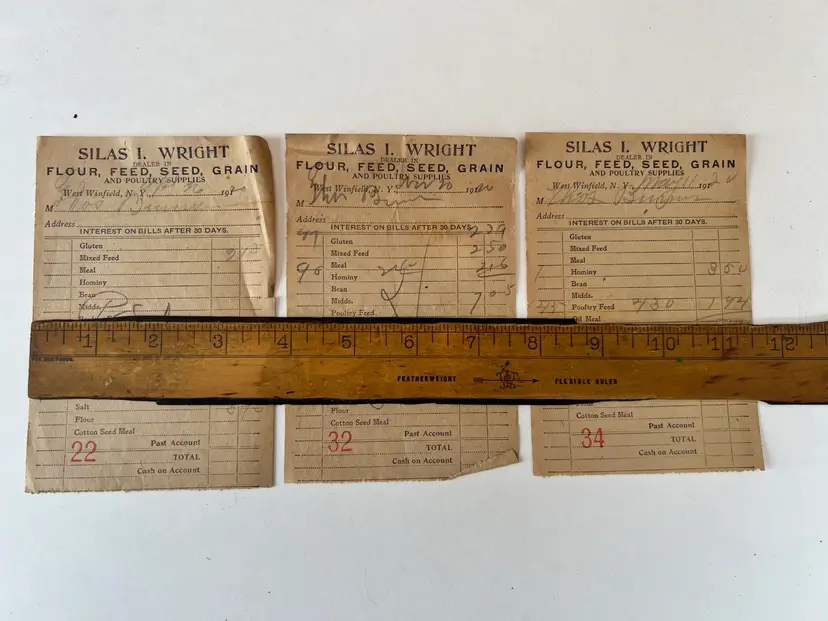 SILAS I. WRIGHT
DEALER IN
FLOUR, FEED, SEED, GRAIN
AND POULTRY SUPPLIES
West Winfield, N. Y. 26 191
M
Address
INTEREST ON BILLS AFTER 30 DAYS.
Gluten
Mixed Feed
Meal
Hominy
Bean
Midds.
Salt
Flour
Cotton Seed Meal
22
Past Account
TOTAL
Cash on Account
SILAS I. WRIGHT
DEALER IN
FLOUR, FEED, SEED, GRAIN
AND POULTRY SUPPLIES
West Winfield, N. Y. 191
M
Address
INTEREST ON BILLS AFTER 30 DAYS. 2 39
Gluten 2 50
Mixed Feed
Meal 2 16
Hominy
Bean 7 05
Midds.
Poultry Feed
Flour
Cotton Seed Meal
32
Past Account
TOTAL
Cash on Account
SILAS I. WRIGHT
DEALER IN
FLOUR, FEED, SEED, GRAIN
AND POULTRY SUPPLIES
West Winfield, N. Y. May 11 191
M
Address
INTEREST ON BILLS AFTER 30 DAYS.
Gluten
Mixed Feed
Meal
1 Hominy 3 50
Bean
Midds.
45 Poultry Feed 430 1 94
Oil Meal
Flour
Cotton Seed Meal
34
Past Account
TOTAL
Cash on Account
1 2 3 4 5 6 7 8 9 10 11 12
FEATHERWEIGHT FLEXIBLE RULER